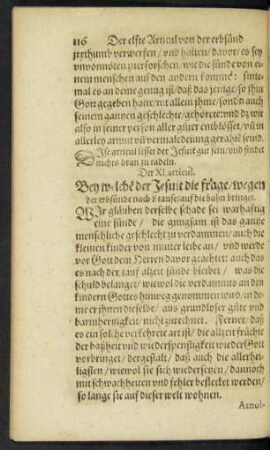 116 Der elfte Articul von der erbsünd
jrrthumb verwerfen / vnd halten / davor / es sey
vnvonnöten zuerforschen / wie die sünde von ei-
nem menschen auf den andern komme: sinte-
mal es an deme genüg ist / daß das jenige / so ihm
Gott gegeben hatte / nit allein ihme / sondern auch
seinem gantzen geschlechte / gehörete: vnd dz wir
also in seiner person aller güter entblösset / vnd in
allerley armut vnd vermaledeiung gerahtē seind.
Dise articul lisset der Jesuit gut sein / vnd findet
nichts dran zu tadeln.
Der XI. articul.
Bey welchē der Jesuit die frage / wegen
der erbsünde nach d' taufe / auf die bahn bringet.
WIr glauben derselbe schade sei warhaftig
eine sünde / die gnugsam ist das gantze
menschliche geschlecht zu verdammen / auch die
kleinen kinder von mutter leibe an / vnd werde
vor Gott dem Herren davor geachtet: auch das
es nach der tauf alzeit sünde bleibet / was die
schuld belanget / wiewol die verdamnus an den
kindern Gottes hinweg genommen wird / in de-
me er ihnen dieselbe / aus grundloser güte vnd
barmhertzigkeit / nicht zurechnet. Ferner / daß
es ein solche verkehrete art ist / die alzeit früchte
der boßheit vnd widerspenstigkeit wieder Gott
vorbringet / dergestalt / daß auch die allerhei-
ligsten / wiewol sie sich wiedersetzen / dannoch
mit schwachheiten vnd fehler beflecket werden /
so lange sie auf dieser welt wohnen.
Arnol-